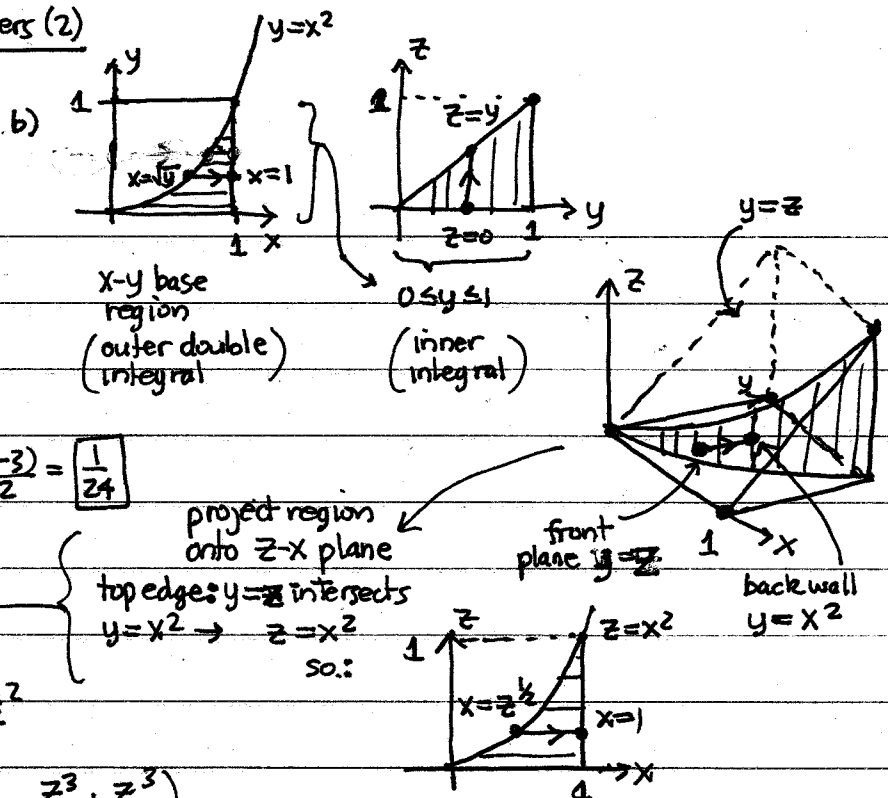 ers (2)
y=x²
y
1
b)
x=√y
x=1
1
x
x-y base
region
(outer double
integral)
z
1
z=y
y
z=0
1
0≤y≤1
(inner
integral)
y=z
z
y
1
x
front
plane y=z
back wall
y=x²
-3)
2
= 1/24
project region
onto z-x plane
top edge: y=z intersects
y=x² → z=x²
so:
z
1
z=x²
x=z^½
x=1
x
1
2
z³, z³)